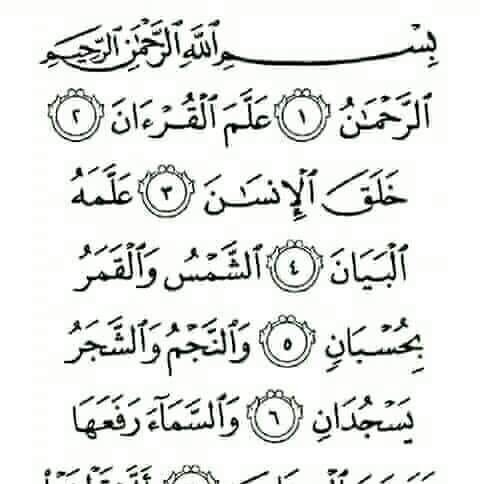 بِسْمِ ٱللَّهِ ٱلرَّحْمَٰنِ ٱلرَّحِيمِ
ٱلرَّحْمَٰنُ ١ عَلَّمَ ٱلْقُرْءَانَ ٢
خَلَقَ ٱلْإِنسَٰنَ ٣ عَلَّمَهُ
ٱلْبَيَانَ ٤ ٱلشَّمْسُ وَٱلْقَمَرُ
بِحُسْبَانٍ ٥ وَٱلنَّجْمُ وَٱلشَّجَرُ
يَسْجُدَانِ ٦ وَٱلسَّمَآءَ رَفَعَهَا